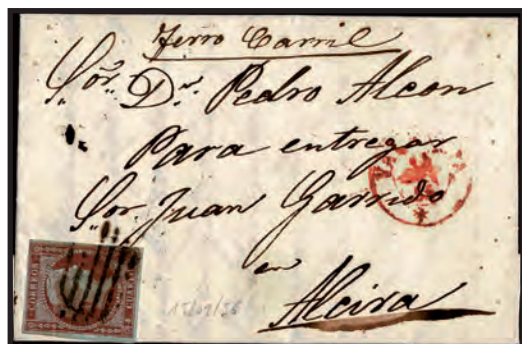 Ferro Carril
Sor. Dn. Pedro Alcon
Para entregar
Sor. Juan Garrido
en
Alcira
CORREOS